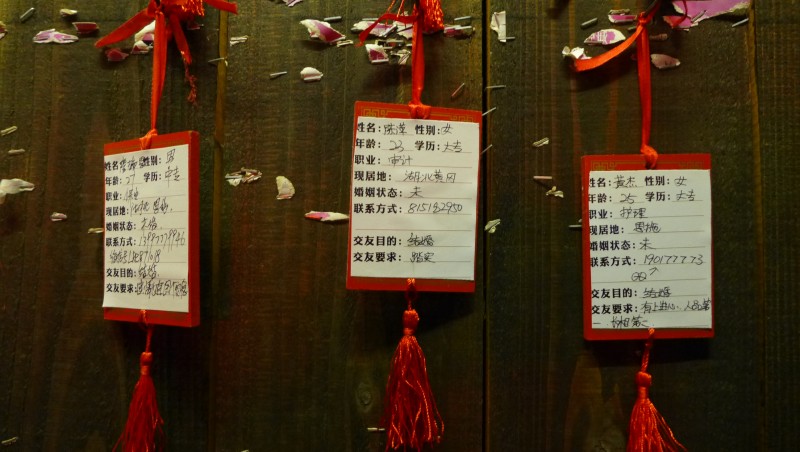 姓名: 性别: 男
年龄: 27 学历: 中专
职业:
现居地: 湖北 恩施
婚姻状态: 未婚
联系方式:
交友目的: 结婚
交友要求:
姓名: 陈萍 性别: 女
年龄: 23 学历: 大专
职业: 审计
现居地: 湖北黄冈
婚姻状态: 未
联系方式: 815182950
交友目的: 结婚
交友要求: 踏实
姓名: 黄杰 性别: 女
年龄: 25 学历: 大专
职业: 护理
现居地: 恩施
婚姻状态: 未
联系方式: 190177773
QQ↑
交友目的: 结婚
交友要求: 有上进心, 人品第
一 长相第二